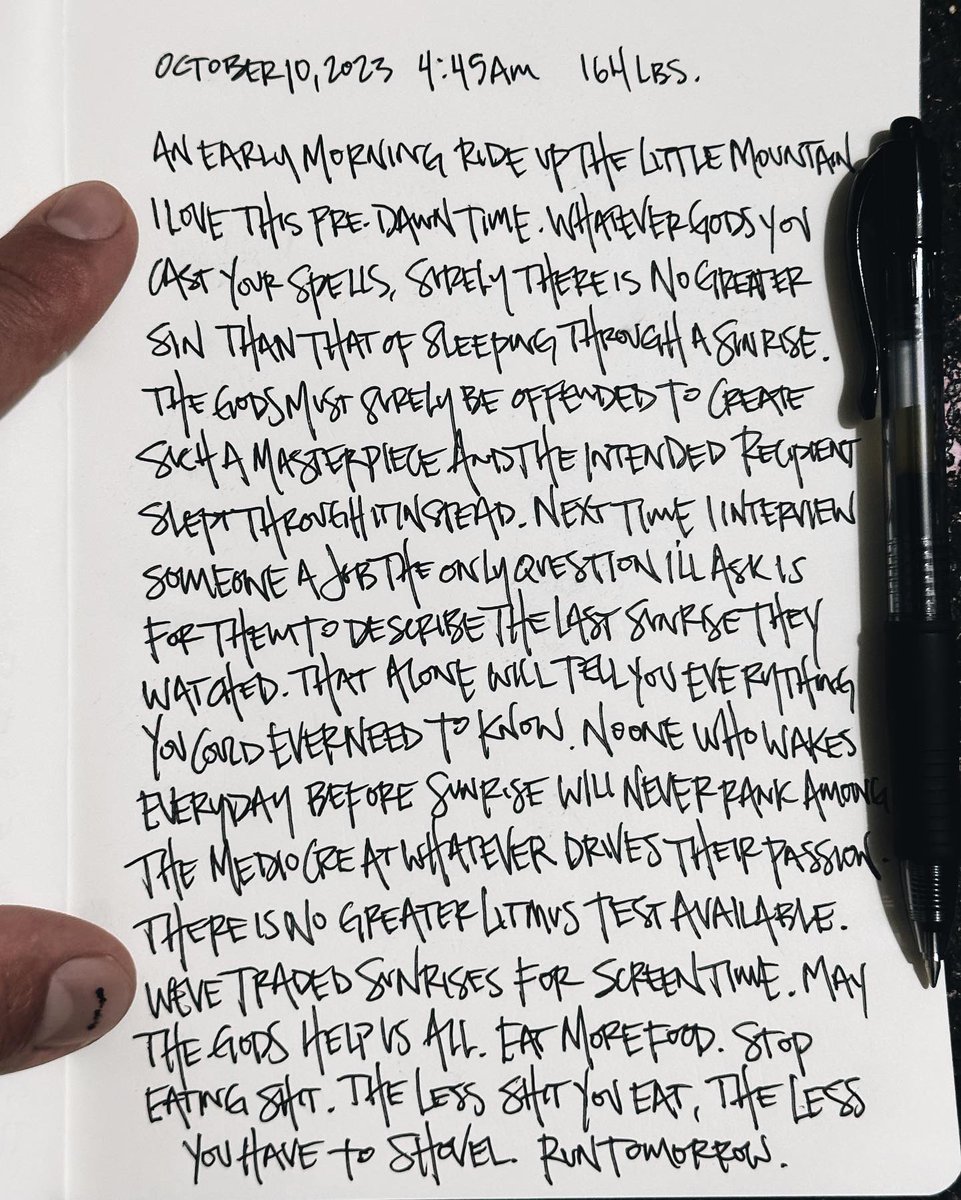 OCTOBER 10, 2023 4:45AM 164 LBS.
AN EARLY MORNING RIDE UP THE LITTLE MOUNTAIN
I LOVE THIS PRE-DAWN TIME. WHATEVER GODS YOU
CAST YOUR SPELLS, SURELY THERE IS NO GREATER
SIN THAN THAT OF SLEEPING THROUGH A SUNRISE.
THE GODS MUST SURELY BE OFFENDED TO CREATE
SUCH A MASTERPIECE AND THE INTENDED RECIPIENT
SLEPT THROUGH IT INSTEAD. NEXT TIME I INTERVIEW
SOMEONE A JOB THE ONLY QUESTION I'LL ASK IS
FOR THEM TO DESCRIBE THE LAST SUNRISE THEY
WATCHED. THAT ALONE WILL TELL YOU EVERYTHING
YOU COULD EVER NEED TO KNOW. NO ONE WHO WAKES
EVERYDAY BEFORE SUNRISE WILL NEVER RANK AMONG
THE MEDIOCRE AT WHATEVER DRIVES THEIR PASSION.
THERE IS NO GREATER LITMUS TEST AVAILABLE.
WE'VE TRADED SUNRISES FOR SCREEN TIME. MAY
THE GODS HELP US ALL. EAT MORE FOOD. STOP
EATING SHIT. THE LESS SHIT YOU EAT, THE LESS
YOU HAVE TO SHOVEL. RUN TOMORROW.